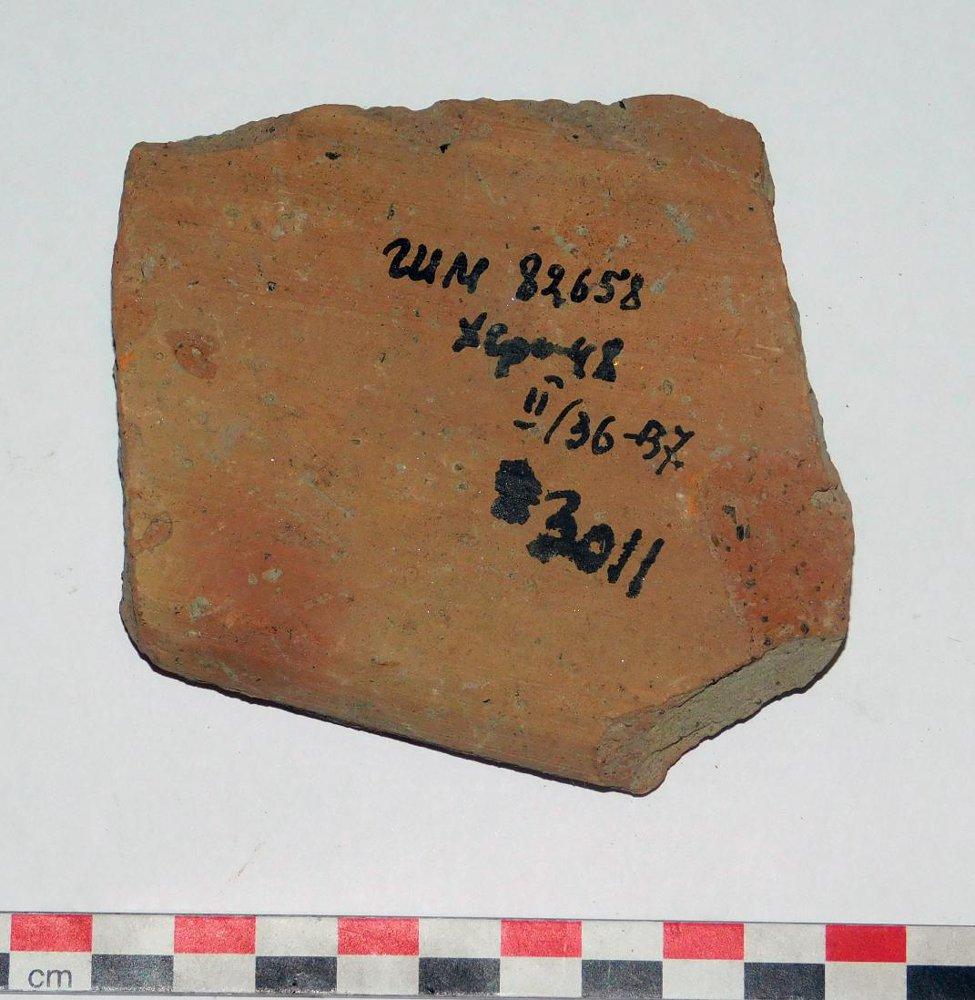 ГИМ 82658
Херс 48
II/36-В7
3011
cm